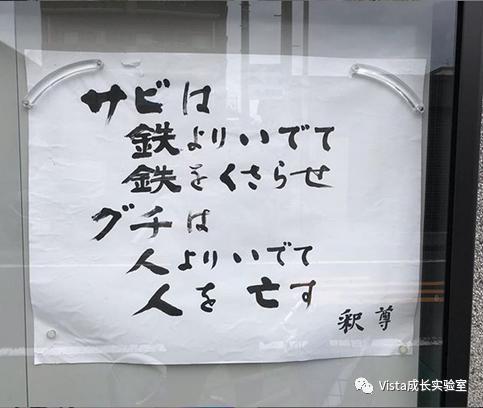 サビは
鉄よりいでて
鉄をくさらせ
グチは
人よりいでて
人を亡す
釈尊
Vista成长实验室